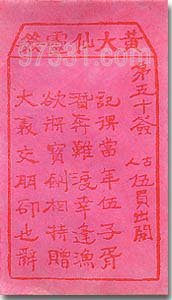 黃大仙靈簽
97531.com
第五十簽
古人 伍員出關
記得當年伍子胥
潛奔難渡幸逢漁
欲將寶劍相持贈
大義交朋卻也辭